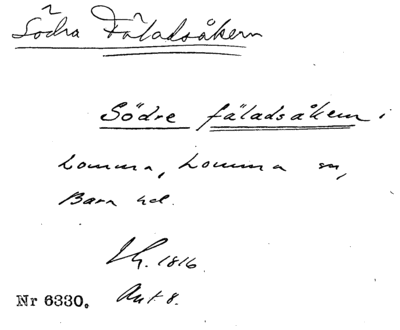 Södra Fäladsåkern
Södre fäladsåkern i
Lomma, Lomma sn,
Bara hd.
1816.
Nr 6330. Akt 8.